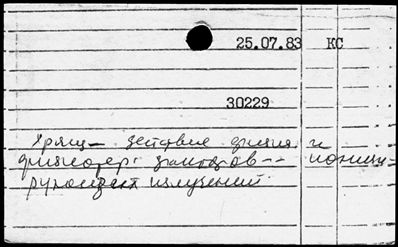 25.07.83 КС
30229
Хрящ – действие физич и
физиотер. факторов -- ионизи-
рующ излучений